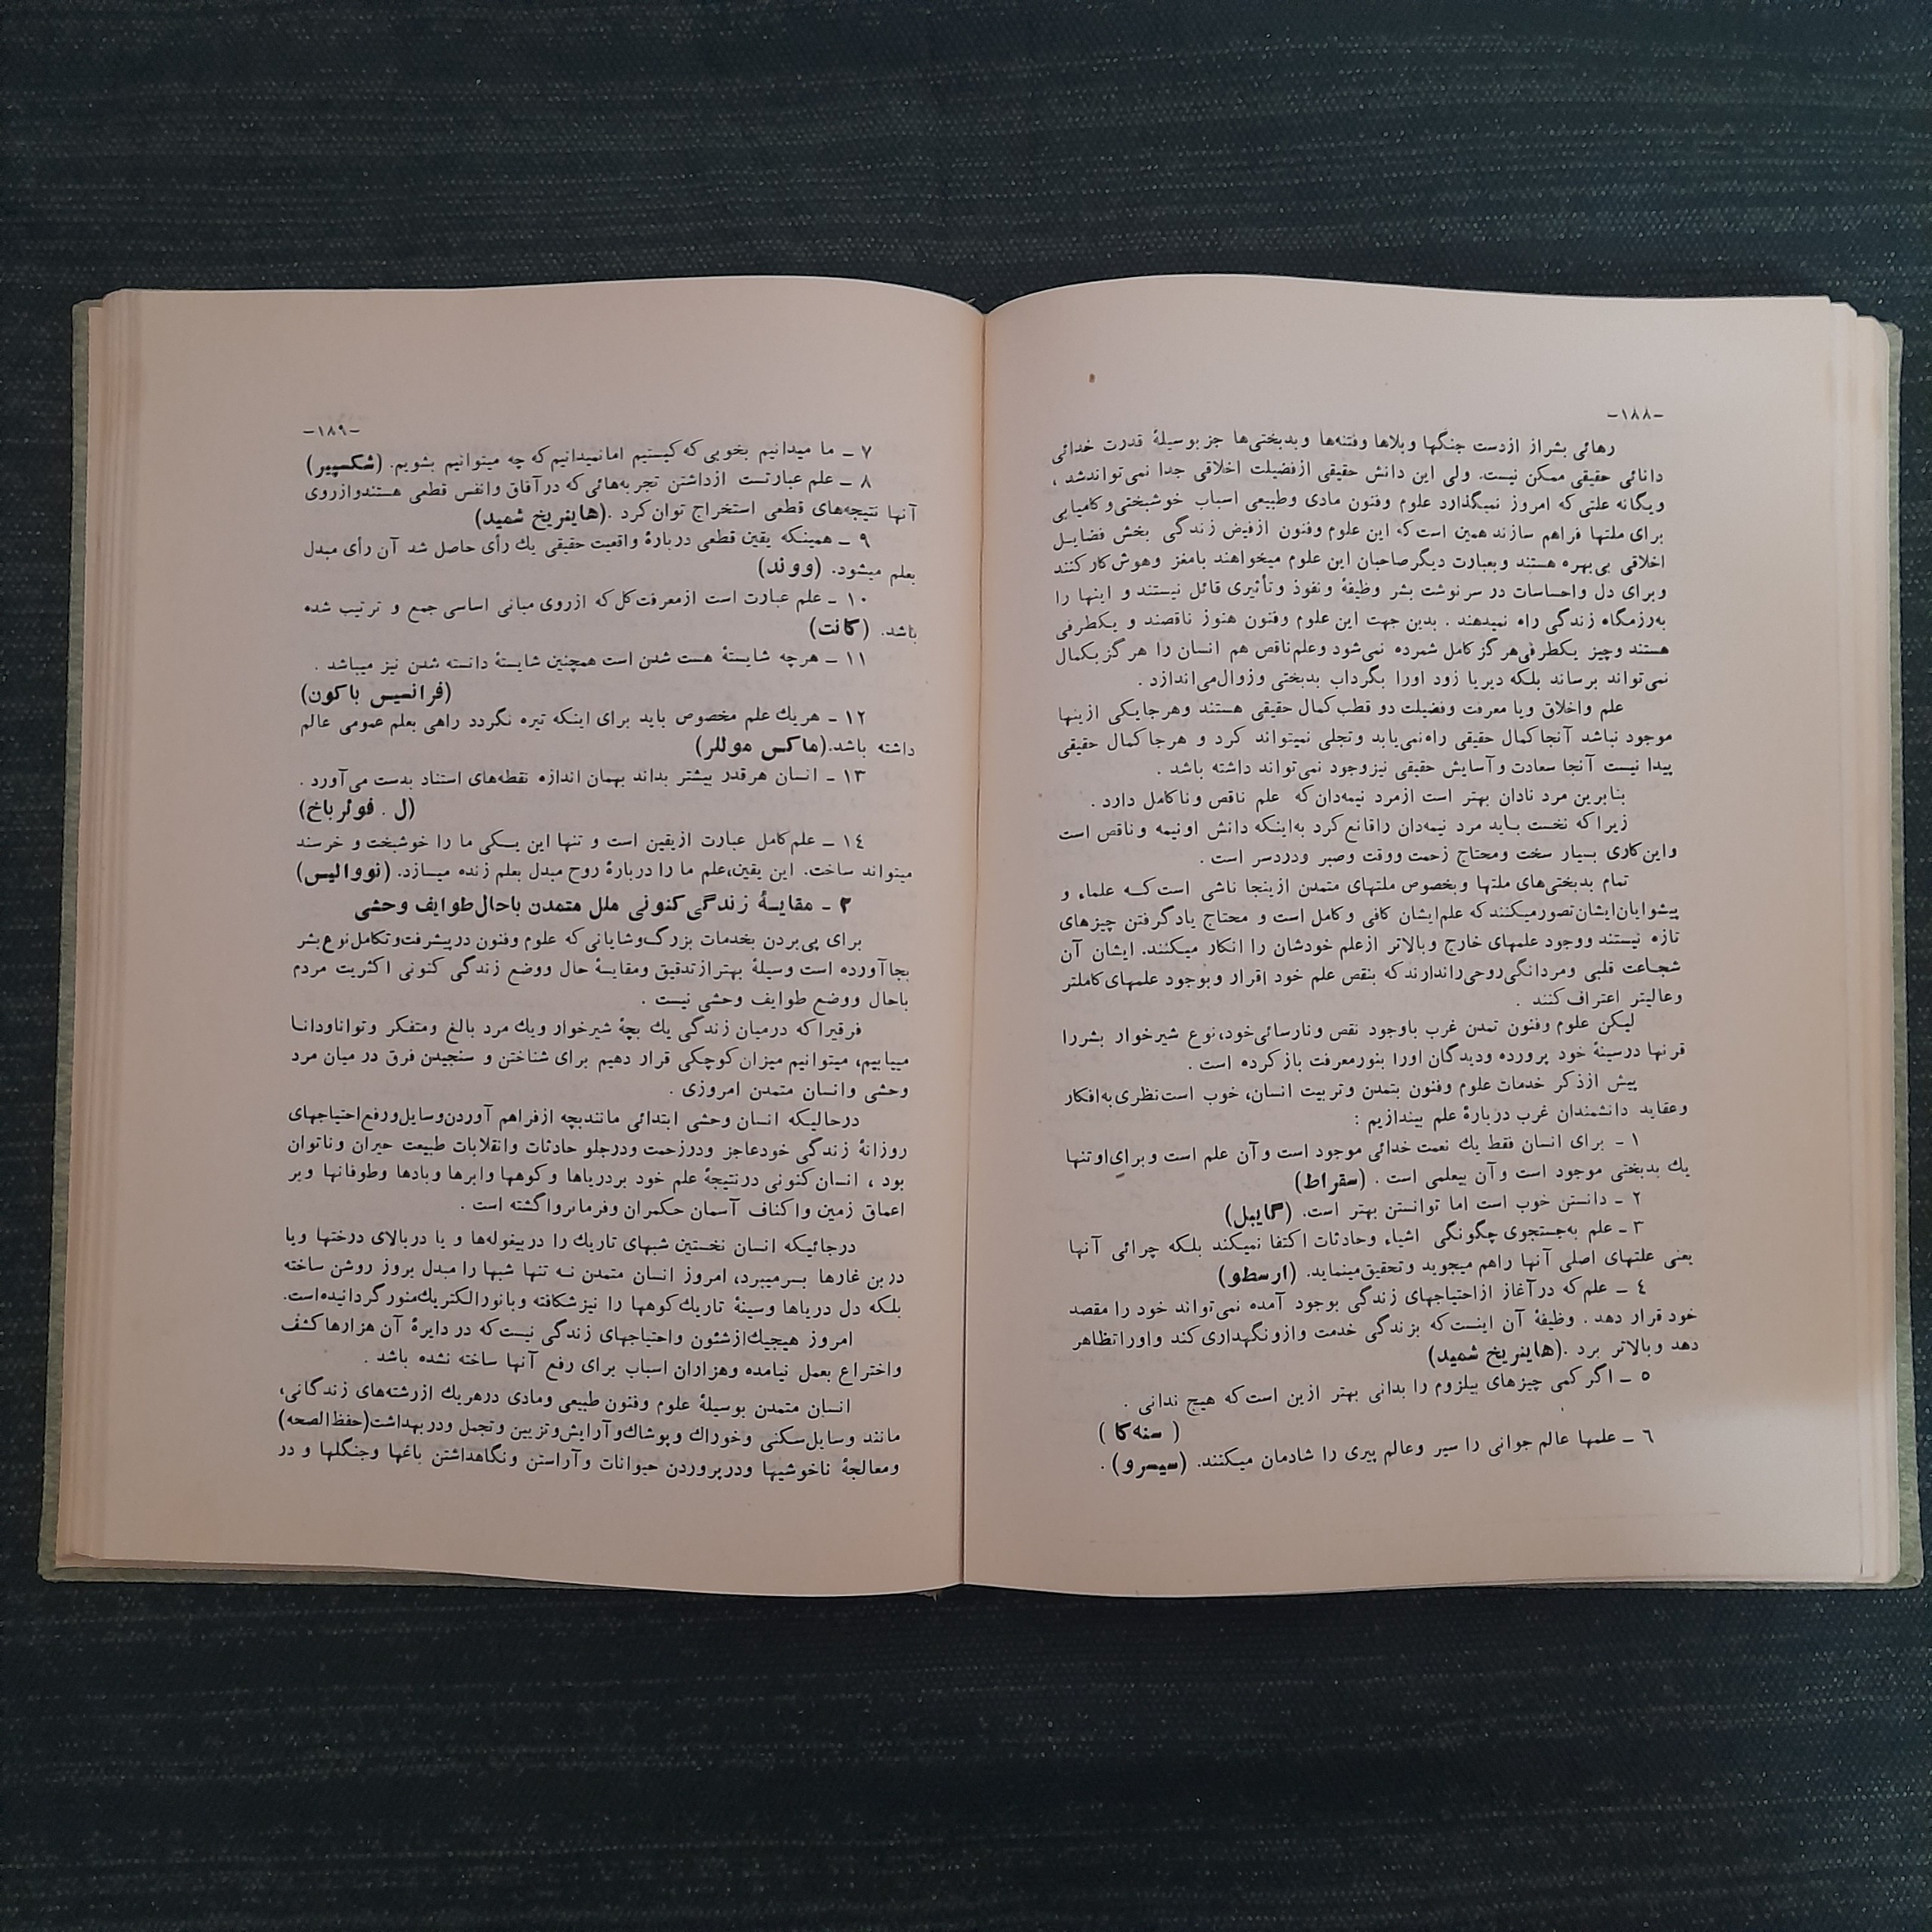 -۱۸۸-
رهائی بشر از ازدست جنگها وبلاها وفتنه‌ها وبدبختی‌ها جز بوسیلهٔ قدرت خدائی
دانائی حقیقی ممکن نیست. ولی این دانش حقیقی ازفضیلت اخلاقی جدا نمی‌تواندشد ،
ویگانه علتی که امروز نمیگذارد علوم وفنون مادی وطبیعی اسباب خوشبختی و کامیابی
برای ملتها فراهم سازند همین است که این علوم وفنون ازفیض زندگی بخش فضایل
اخلاقی بی‌بهره هستند وبعبارت دیگر صاحبان این علوم میخواهند بامغز وهوش کار کنند
وبرای دل واحساسات در سرنوشت بشر وظیفهٔ ونفوذ وتأثیری قائل نیستند و اینها را
به‌رزمگاه زندگی راه نمیدهند . بدین جهت این علوم وفنون هنوز ناقصند و یکطرفی
هستند وچیز یکطرفی‌هرگز کامل شمرده نمی‌شود وعلم‌ناقص هم انسان را هرگز بکمال
نمی‌تواند برساند بلکه دیریا زود اورا بگرداب بدبختی وزوال‌می‌اندازد .
علم واخلاق ویا معرفت وفضیلت دو قطب کمال حقیقی هستند وهرجایکی ازینها
موجود نباشد آنجا کمال حقیقی راه‌نمی‌یابد وتجلی نمیتواند کرد و هرجا کمال حقیقی
پیدا نیست آنجا سعادت و آسایش حقیقی نیزوجود نمی‌تواند داشته باشد .
بنابرین مرد نادان بهتر است ازمرد نیمه‌دان که علم ناقص وناکامل دارد .
زیرا که نخست باید مرد نیمه‌دان راقانع کرد به‌اینکه دانش اونیمه وناقص است
واین‌کاری بسیار سخت ومحتاج زحمت ووقت وصبر ودردسر است .
تمام بدبختی‌های ملتها وبخصوص ملتهای متمدن ازینجا ناشی است که علماء و
پیشوایان‌ایشان‌تصورمیکنند که علم‌ایشان کافی و کامل است و محتاج یاد گرفتن چیزهای
تازه نیستند ووجود علمهای خارج وبالاتر ازعلم خودشان را انکار میکنند. ایشان آن
شجاعت قلبی ومردانگی‌روحی‌راندارند که بنقص علم خود اقرار وبوجود علمهای کاملتر
وعالیتر اعتراف کنند .
لیکن علوم وفنون تمدن غرب باوجود نقص ونارسائی‌خود، نوع شیرخوار بشررا
قرنها درسینهٔ خود پرورده ودیدگان اورا بنورمعرفت باز کرده است .
پیش ازذکر خدمات علوم وفنون بتمدن وتربیت انسان، خوب است‌نظری به‌افکار
وعقاید دانشمندان غرب دربارهٔ علم بیندازیم :
۱ - برای انسان فقط یك نعمت خدائی موجود است و آن علم است وبرای‌اوتنها
یك بدبختی موجود است و آن بیعلمی است . (سقراط)
۲ - دانستن خوب است اما توانستن بهتر است. (گایبل)
۳ - علم به‌جستجوی چگونگی اشیاء وحادثات اکتفا نمیکند بلکه چرائی آنها
یعنی علتهای اصلی آنها راهم میجوید وتحقیق‌مینماید. (ارسطو)
٤ - علم که درآغاز ازاحتیاجهای زندگی بوجود آمده نمی‌تواند خود را مقصد
خود قرار دهد . وظیفهٔ آن اینست که بزندگی خدمت وازونگهداری کند واوراتظاهر
دهد وبالاتر برد .(هاینریخ شمید)
٥ - اگر کمی چیزهای بیلزوم را بدانی بهتر ازین است که هیچ ندانی .
( سنه‌کا )
٦ - علمها عالم جوانی را سیر وعالم پیری را شادمان میکنند. (سیسرو) .
-۱۸۹-
۷ - ما میدانیم بخوبی که کیستیم امانمیدانیم که چه میتوانیم بشویم. (شکسپیر)
۸ - علم عبارتست ازداشتن تجربه‌هائی که درآفاق وانفس قطعی هستندوازروی
آنها نتیجه‌های قطعی استخراج توان کرد .(هاینریخ شمید)
۹ - همینکه یقین قطعی دربارهٔ واقعیت حقیقی یك رأی حاصل شد آن رأی مبدل
بعلم میشود. (ووند)
۱۰ - علم عبارت است ازمعرفت‌کل که ازروی مبانی اساسی جمع و ترتیب شده
باشد. (کانت)
۱۱ - هرچه شایستهٔ هست شدن است همچنین شایستهٔ دانسته شدن نیز میباشد .
(فرانسیس باکون)
۱۲ - هریك علم مخصوص باید برای اینکه تیره نگردد راهی بعلم عمومی عالم
داشته باشد.(ماکس موللر)
۱۳ - انسان هرقدر بیشتر بداند بهمان اندازه نقطه‌های استناد بدست می‌آورد .
(ل . فوئرباخ)
١٤ - علم کامل عبارت ازیقین است و تنها این یکی ما را خوشبخت و خرسند
میتواند ساخت. این یقین،علم ما را دربارهٔ روح مبدل بعلم زنده میسازد. (نووالیس)
۲ - مقایسهٔ زندگی کنونی ملل متمدن باحال طوایف وحشی
برای پی‌بردن بخدمات بزرگ‌وشایانی که علوم وفنون درپیشرفت‌وتکامل‌نوع‌بشر
بجاآورده است وسیلهٔ بهتر ازتدقیق ومقایسهٔ حال ووضع زندگی کنونی اکثریت مردم
باحال ووضع طوایف وحشی نیست .
فرقیراکه درمیان زندگی یك بچهٔ شیرخوار ویك مرد بالغ ومتفکر وتواناودانا
مییابیم، میتوانیم میزان کوچکی قرار دهیم برای شناختن و سنجیدن فرق در میان مرد
وحشی وانسان متمدن امروزی .
درحالیکه انسان وحشی ابتدائی مانندبچه ازفراهم آوردن‌وسایل‌ورفع‌احتیاجهای
روزانهٔ زندگی خودعاجز ودرزحمت ودرجلو حادثات وانقلابات طبیعت حیران وناتوان
بود ، انسان کنونی درنتیجهٔ علم خود بردریاها و کوهها وابرها وبادها وطوفانها وبر
اعماق زمین واکناف آسمان حکمران وفرمانرواگشته است .
درجائیکه انسان نخستین شبهای تاریك را دربیغوله‌ها و یا دربالای درختها ویا
دربن غارها بسرمیبرد، امروز انسان متمدن نه تنها شبها را مبدل بروز روشن ساخته
بلکه دل دریاها وسینهٔ تاریك کوهها را نیز شکافته وبانورالکتریك‌منورگردانیده‌است.
امروز هیچیك‌ازشئون واحتیاجهای زندگی نیست که در دایرهٔ آن هزارها کشف
واختراع بعمل نیامده وهزاران اسباب برای رفع آنها ساخته نشده باشد .
انسان متمدن بوسیلهٔ علوم وفنون طبیعی ومادی درهریك ازرشته‌های زندگانی،
مانند وسایل‌سکنی وخوراك وپوشاك‌وآرایش‌وتزیین وتجمل ودربهداشت(حفظ‌الصحه)
ومعالجهٔ ناخوشیها ودرپروردن حیوانات وآراستن ونگاهداشتن باغها وجنگلها و در